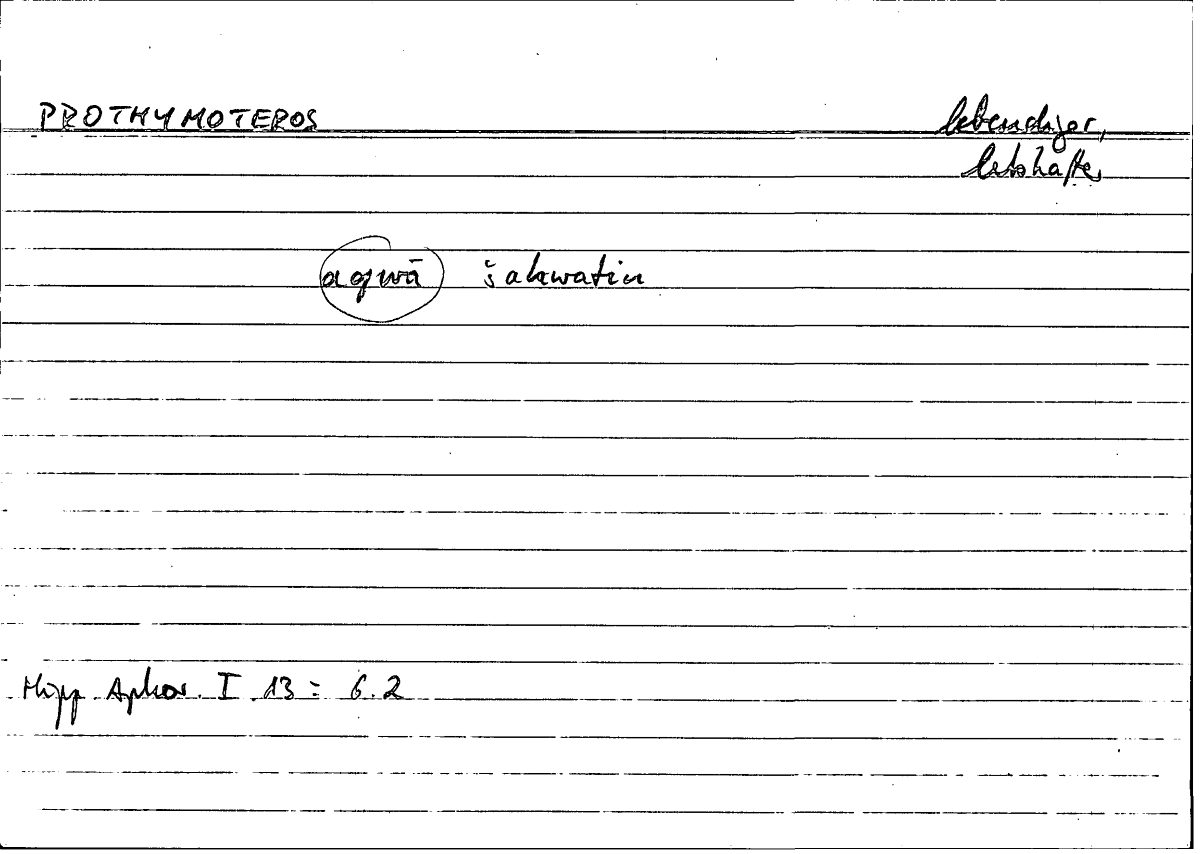 PROTHYMOTEROS lebendiger,
lebhafter
aqwā šahwatin
Hipp. Aphor. I 13 = 6.2